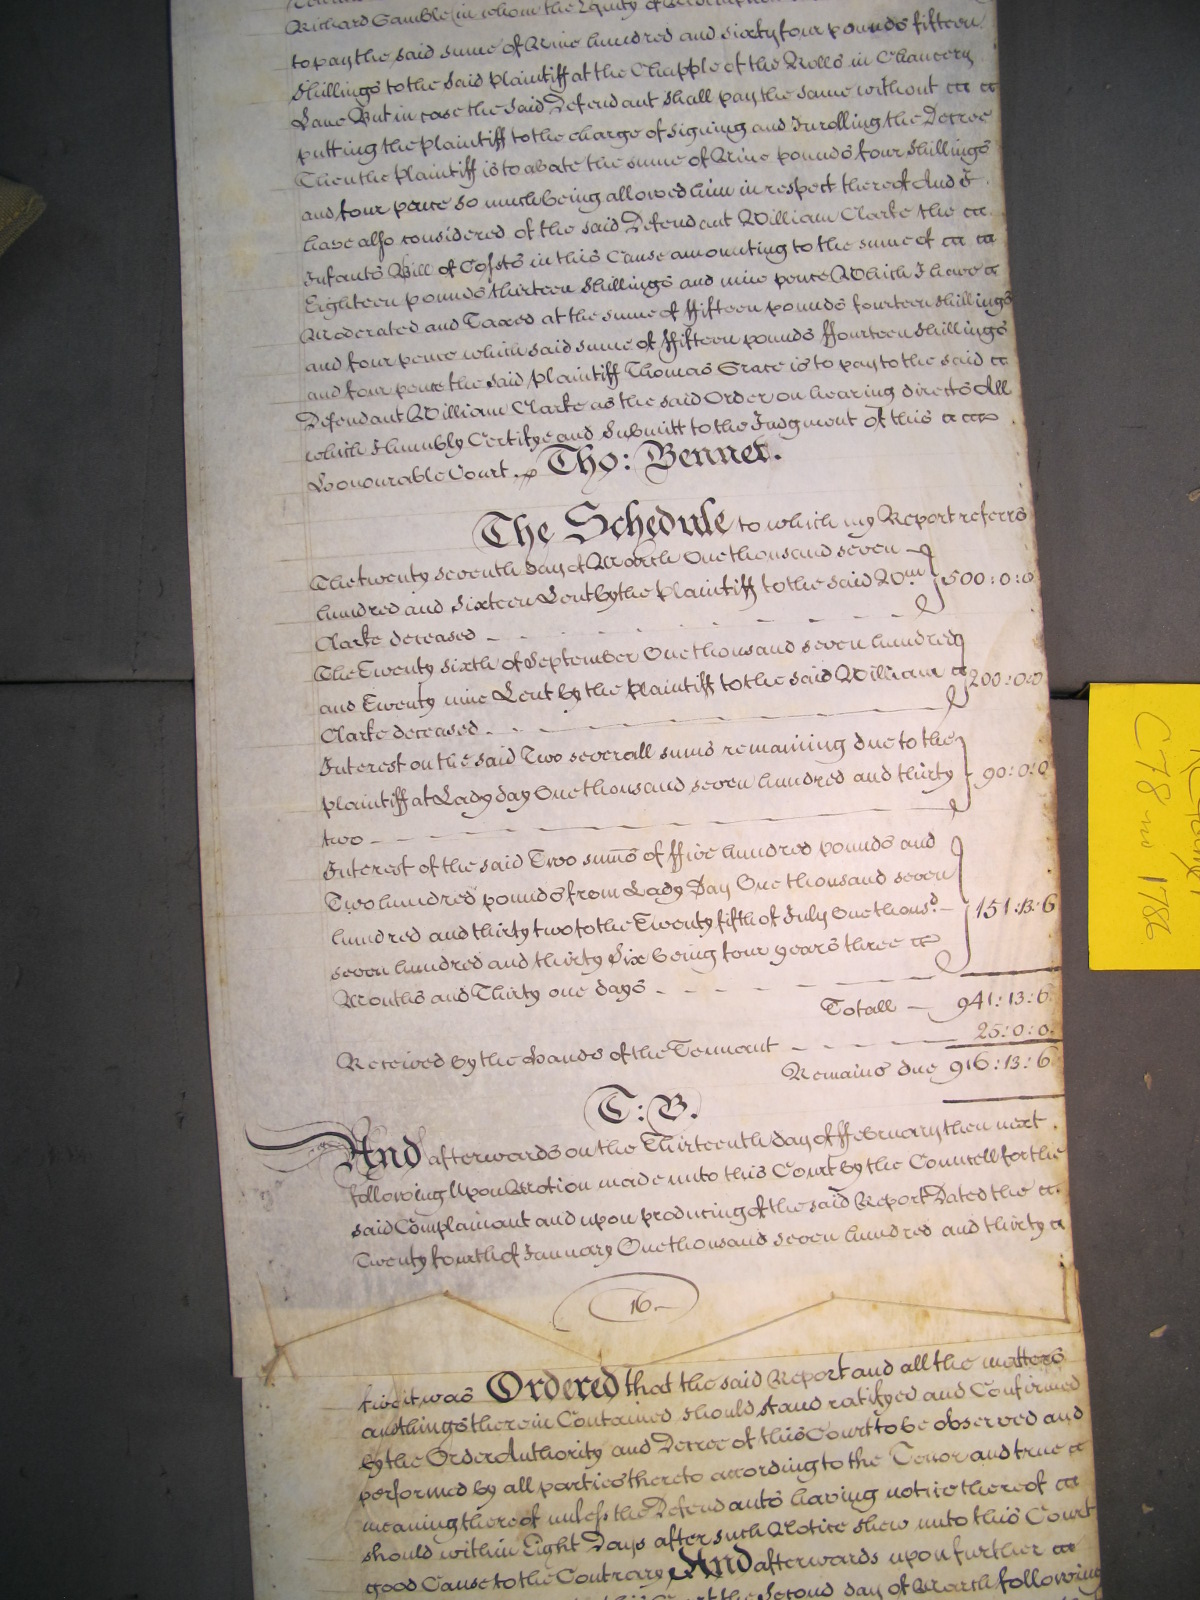 Richard Gamble (in whom the Equity of Redemption
to pay the said sume of Nine hundred and sixty four pounds fifteen
shillings to the said plaintiff at the Chapple of the Rolls in Chancery
Lane But in case the said Defendant shall pay the same without
putting the plaintiff to the charge of signing and Inrolling the Decree
Then the plaintiff is to abate the sume of Nine pounds four shillings
and four pence so much being allowed him in respect thereof And I
have also considered of the said Defendant William Clarke the
Infants Bill of Costs in this Cause amounting to the sume of
Eighteen pounds thirteen shillings and nine pence Which I have
Moderated and Taxed at the sume of ffifteen pounds fourteen shillings
and four pence which said sume of ffifteen pounds ffourteen shillings
and four pence the said plaintiff Thomas Grace is to pay to the said
Defendant William Clarke as the said Order on hearing directs All
which I humbly Certifye and Submitt to the Judgment of this
Honourable Court. Tho: Bennet.
The Schedule to which my Report referrs
The twenty seventh day of March One thousand seven
hundred and Sixteen Lent by the plaintiff to the said Wm 500:0:0
Clarke deceased
The Twenty sixth of September One thousand seven hundred
and Twenty nine Lent by the plaintiff to the said William 200:0:0
Clarke deceased
Interest on the said Two severall sums remaining due to the
plaintiff at Lady day One thousand seven hundred and thirty 90:0:0
two
Interest of the said Two sums of ffive hundred pounds and
Two hundred pounds from Lady Day One thousand seven
hundred and thirty two to the Twenty fifth of July One thousd 151:13:6
seven hundred and thirty Six being four years three
Months and Thirty one days
Totall 941:13:6
Received by the hands of the Tennant 25:0:0
Remains due 916:13:6
T:B.
And afterwards on the Thirteenth day of ffebruary then next
following Upon Motion made unto this Court by the Councell for the
said Complainant and upon producing of the said Report Dated the
Twenty fourth of January One thousand seven hundred and thirty
16
five it was Ordered that the said Report and all the matters
and things therein Contained should stand ratifyed and Confirmed
by the Order Authority and Decree of this Court to be observed and
performed by all parties thereto according to the Tenor and true
meaning thereof unless the Defendants having notice thereof
should within Eight Days after such Notice shew unto this Court
good Cause to the Contrary And afterwards upon further
Court the Second day of March following
C78 no 1786